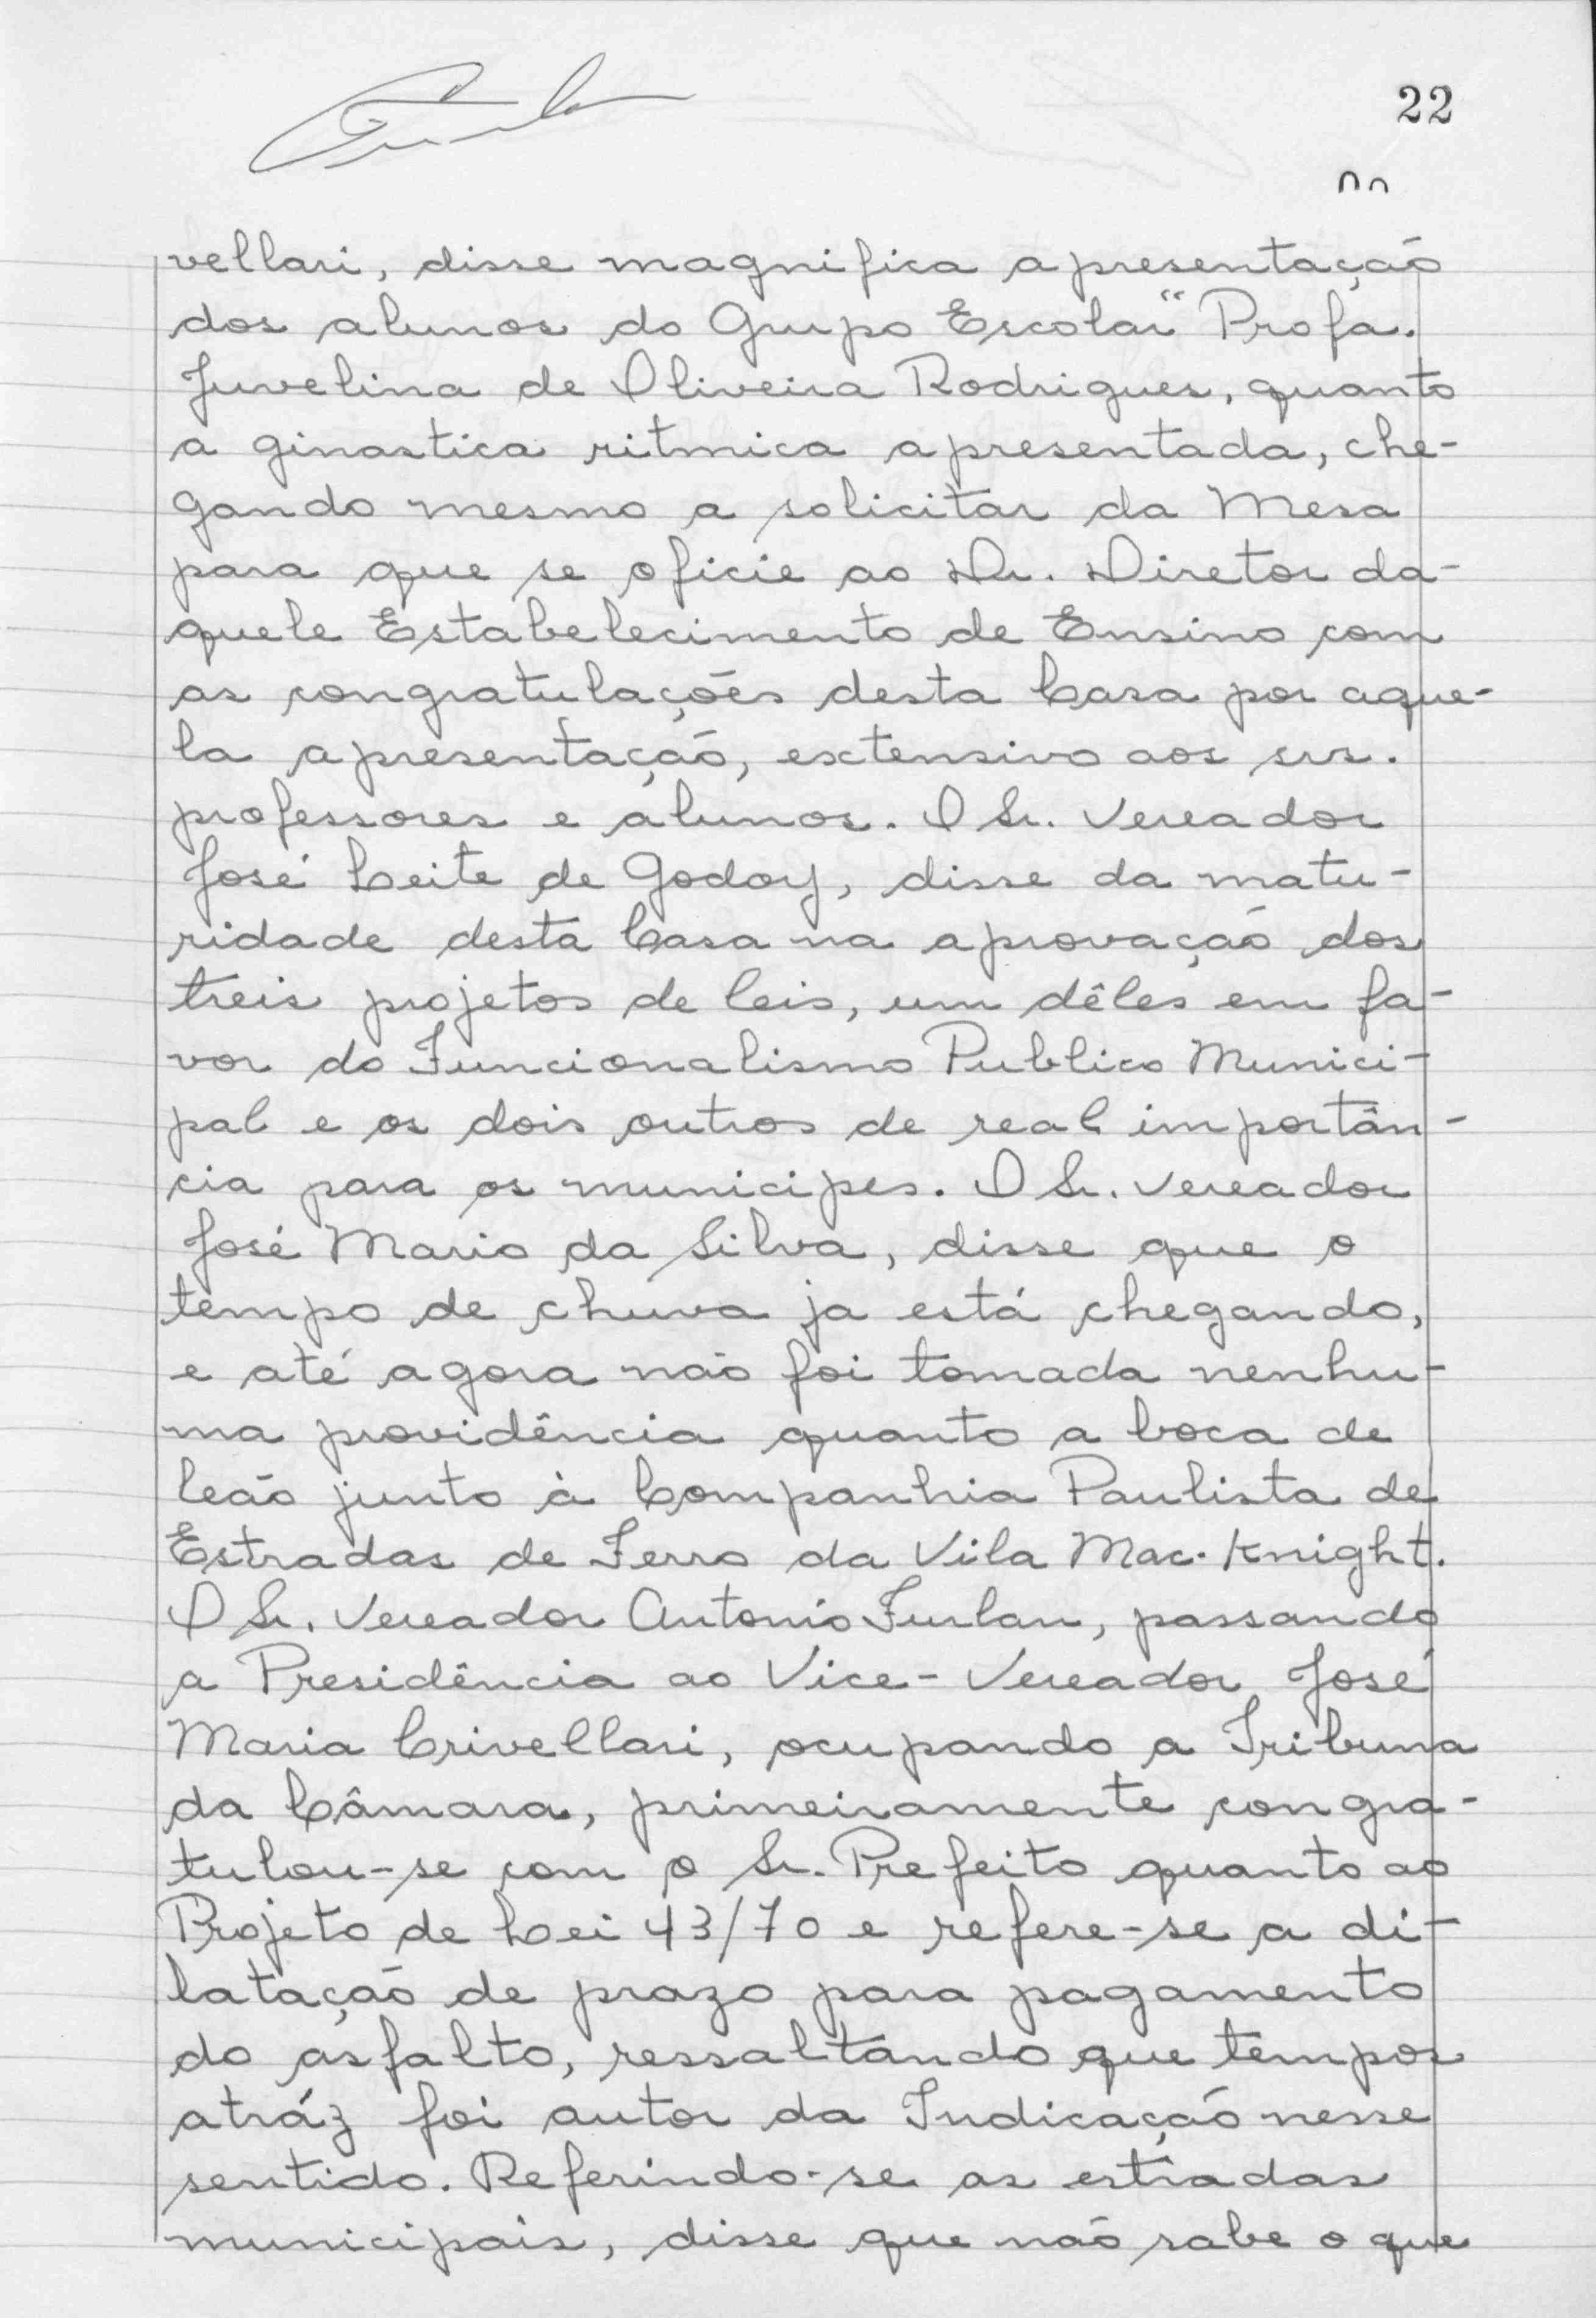 22
vellari, disse magnifica apresentação
dos alunos do Grupo Escolar "Profa.
Juvelina de Oliveira Rodrigues, quanto
a ginastica ritmica apresentada, che-
gando mesmo a solicitar da Mesa
para que se oficie ao Dr. Diretor da-
quele Estabelecimento de Ensino com
as congratulações desta Casa por aque-
la apresentação, extensivo aos srs.
professores e alunos. O Sr. Vereador
José Leite de Godoy, disse da matu-
ridade desta Casa na aprovação dos
treis projetos de leis, um dêles em fa-
vor do Funcionalismo Publico Munici-
pal e os dois outros de real importân-
cia para os municipes. O Sr. Vereador
José Mario da Silva, disse que o
tempo de chuva ja está chegando,
e até agora não foi tomada nenhu-
ma providência quanto a boca de
leão junto à Companhia Paulista de
Estradas de Ferro da Vila Mac-Knight.
O Sr. Vereador Antonio Furlan, passando
a Presidência ao Vice-Vereador José
Maria Crivellari, ocupando a Tribuna
da Câmara, primeiramente congra-
tulou-se com o Sr. Prefeito quanto ao
Projeto de Lei 43/70 e refere-se a di-
latação de prazo para pagamento
do asfalto, ressaltando que tempos
atráz foi autor da Indicação nesse
sentido. Referindo-se as estradas
municipais, disse que não sabe o que